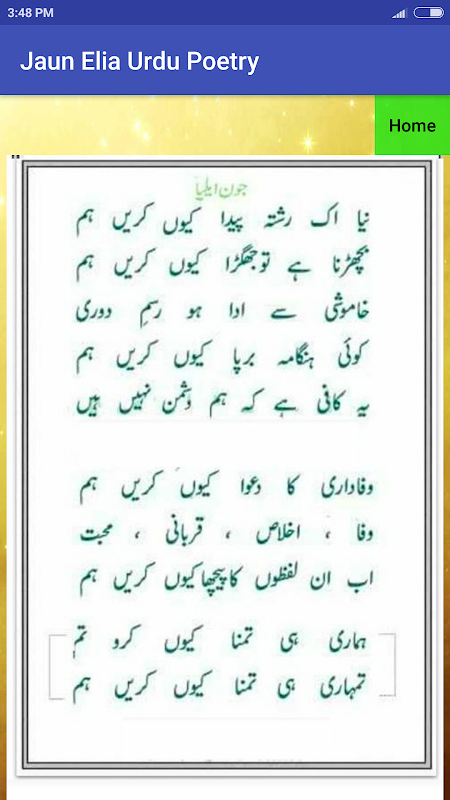 3:48 PM
Jaun Elia Urdu Poetry
Home
جون ایلیا
نیا اک رشتہ پیدا کیوں کریں ہم
بچھڑنا ہے تو جھگڑا کیوں کریں ہم
خاموشی سے ادا ہو رسمِ دوری
کوئی ہنگامہ برپا کیوں کریں ہم
یہ کافی ہے کہ ہم دشمن نہیں ہیں
وفاداری کا دعوا کیوں کریں ہم
وفا ، اخلاص ، قربانی ، محبت
اب ان لفظوں کا پیچھا کیوں کریں ہم
ہماری ہی تمنا کیوں کرو تم
تمہاری ہی تمنا کیوں کریں ہم